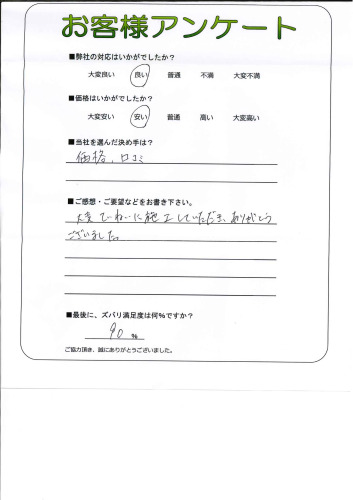 お客様アンケート
■弊社の対応はいかがでしたか?
大変良い 良い 普通 不満 大変不満
■価格はいかがでしたか?
大変安い 安い 普通 高い 大変高い
■当社を選んだ決め手は?
価格、口コミ
■ご感想・ご要望などをお書き下さい。
大変ていねいに施工していただき、ありがとう
ございました。
■最後に、ズバリ満足度は何%ですか?
90 %
ご協力頂き、誠にありがとうございました。